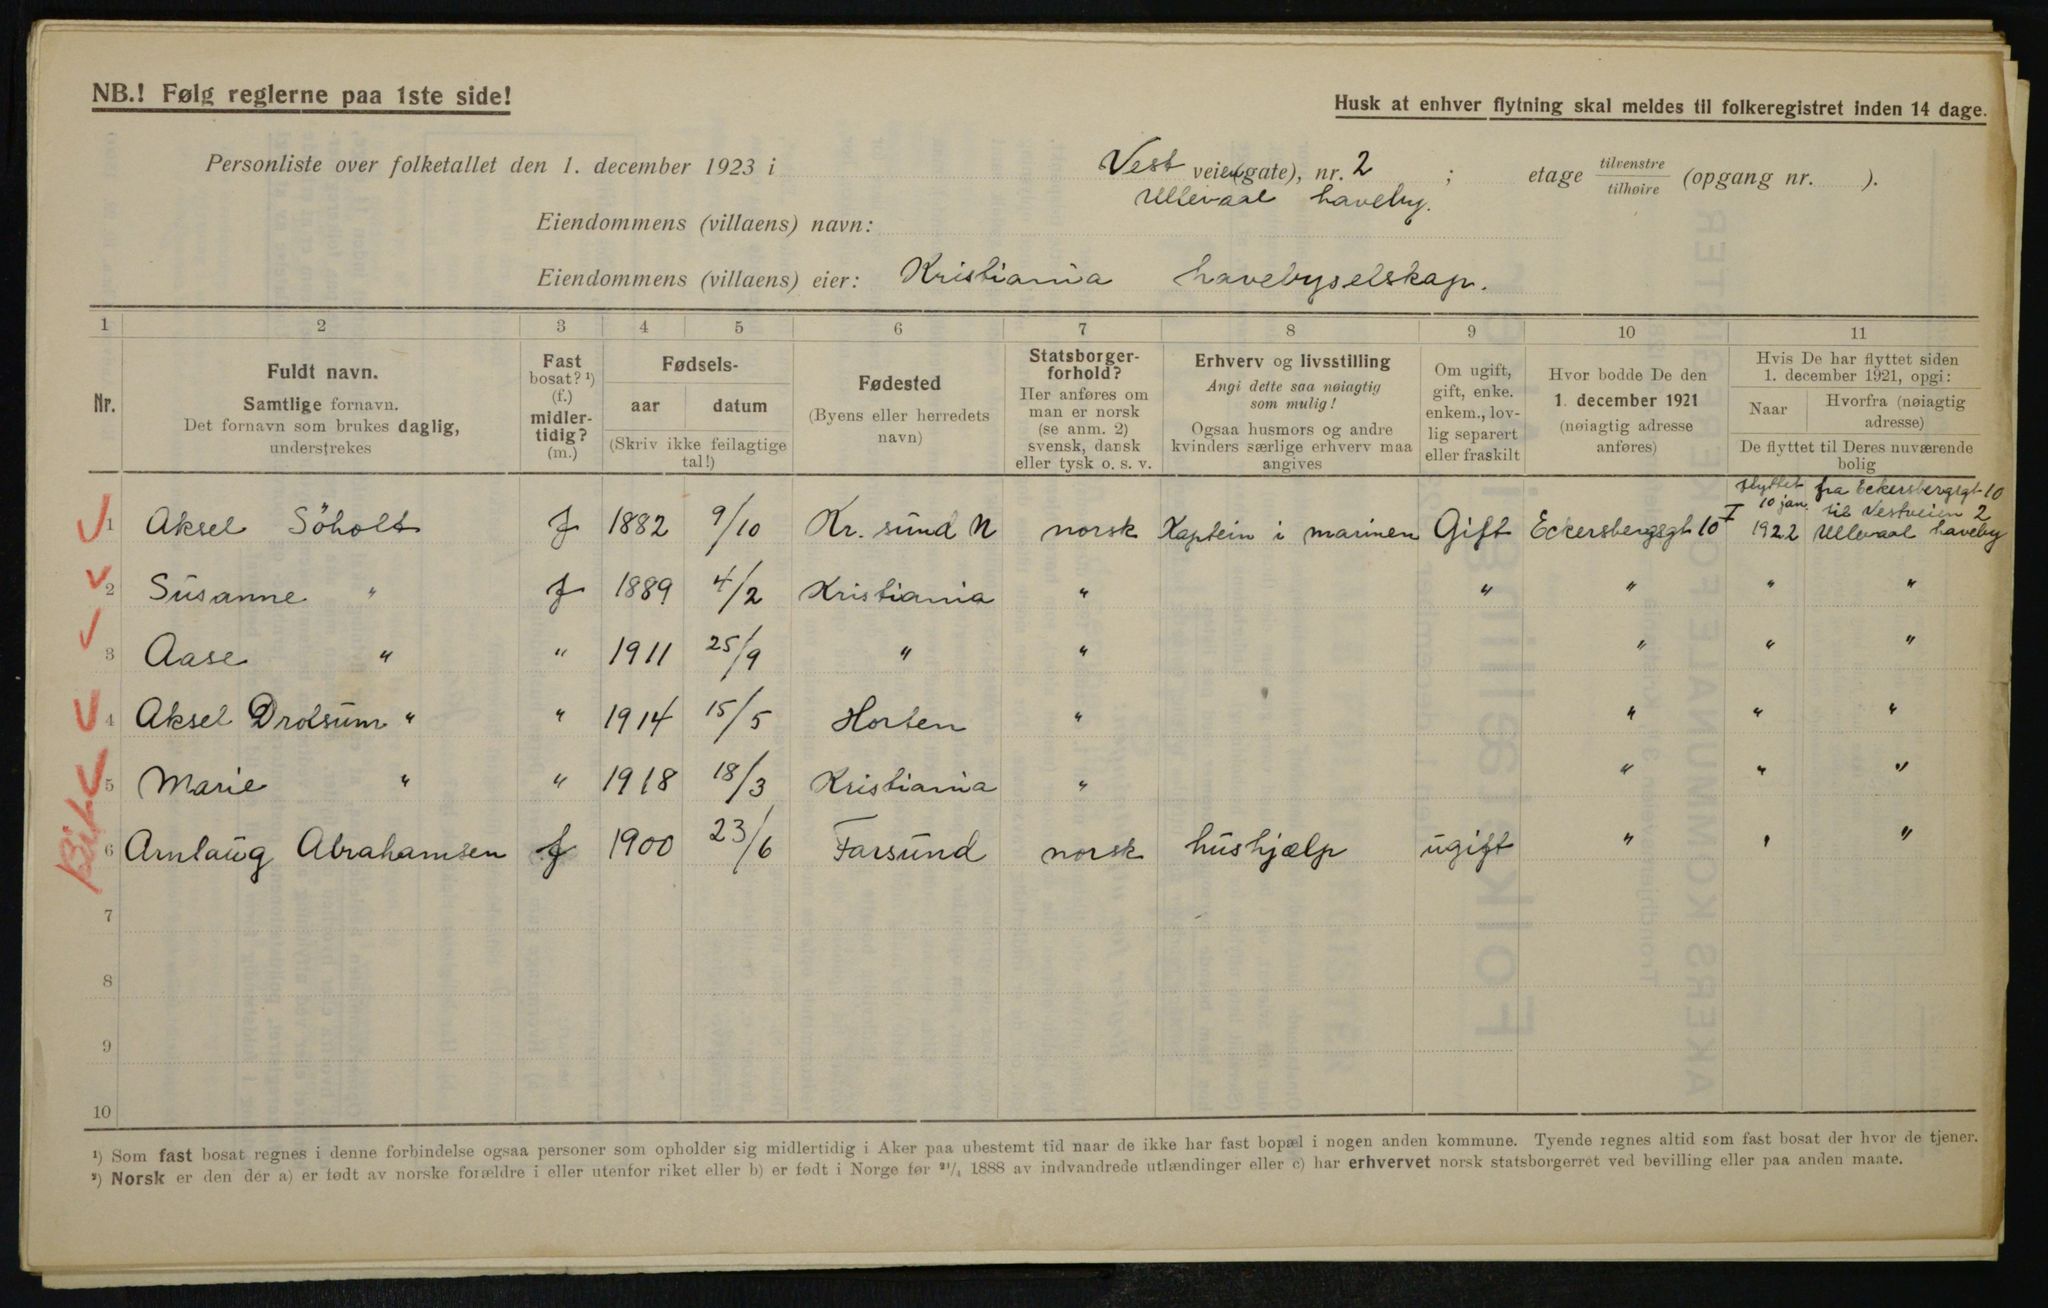 NB.! Følg reglerne paa 1ste side!
Husk at enhver flytning skal meldes til folkeregistret inden 14 dage.
Personliste over folketallet den 1. december 1923 i Vest veien(gate), nr. 2 ; etage tilvenstre/tilhøire (opgang nr. ).
Ullevaal haveby.
Eiendommens (villaens) navn:
Eiendommens (villaens) eier: Kristiania havebyselskap.
1 2 3 4 5 6 7 8 9 10 11
Nr.
Fuldt navn.
Samtlige fornavn.
Det fornavn som brukes daglig,
understrekes
Fast
bosat? ¹)
(f.)
midler-
tidig?
(m.)
Fødsels-
aar datum
(Skriv ikke feilagtige
tal!)
Fødested
(Byens eller herredets
navn)
Statsborger-
forhold?
Her anføres om
man er norsk
(se anm. 2)
svensk, dansk
eller tysk o. s. v.
Erhverv og livsstilling
Angi dette saa nøiagtig
som mulig!
Ogsaa husmors og andre
kvinders særlige erhverv maa
angives
Om ugift,
gift, enke.
enkem., lov-
lig separert
eller fraskilt
Hvor bodde De den
1. december 1921
(nøiagtig adresse
anføres)
Hvis De har flyttet siden
1. december 1921, opgi:
Naar
Hvorfra (nøiagtig
adresse)
De flyttet til Deres nuværende
bolig
flyttet fra Eckersbergsgt 10
10 jan. til Vestveien 2
1 Aksel Söholt f 1882 9/10 Kr. sund N norsk Kaptein i marinen Gift Eckersbergsgt 10 I 1922 Ullevaal haveby
2 Susanne " f 1889 4/2 Kristiania " " " " "
3 Aase " " 1911 25/9 " " " " "
4 Aksel Drolsum " " 1914 15/5 Horten " " " "
5 Marie " " 1918 18/3 Kristiania " " " "
6 Arnlaug Abrahamsen f 1900 23/6 Farsund norsk hushjælp ugift " " "
7
8
9
10
¹) Som fast bosat regnes i denne forbindelse ogsaa personer som opholder sig midlertidig i Aker paa ubestemt tid naar de ikke har fast bopæl i nogen anden kommune. Tyende regnes altid som fast bosat der hvor de tjener.
²) Norsk er den der a) er født av norske forældre i eller utenfor riket eller b) er født i Norge før ²¹/₄ 1888 av indvandrede utlændinger eller c) har erhvervet norsk statsborgerret ved bevilling eller paa anden maate.